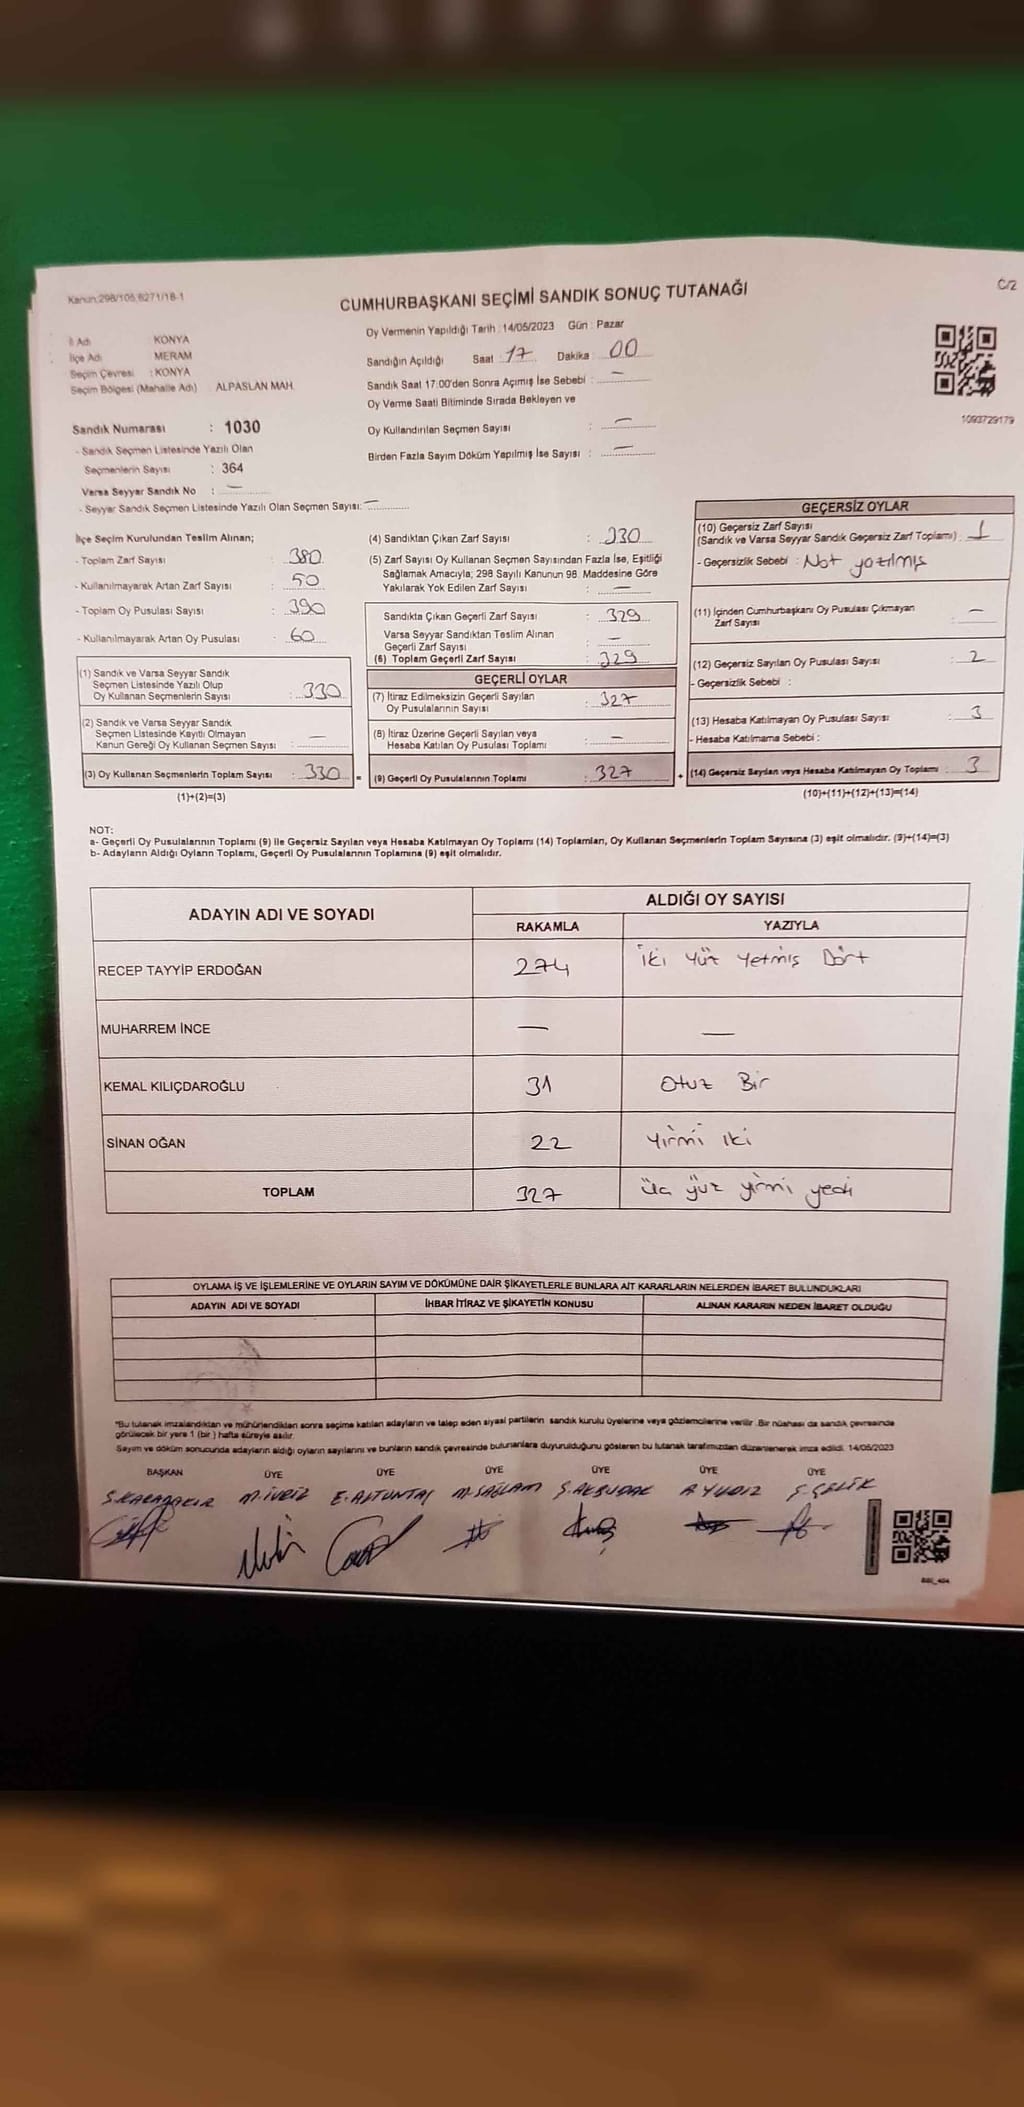 Kanun:298/105,6271/18-1
C/2
CUMHURBAŞKANI SEÇİMİ SANDIK SONUÇ TUTANAĞI
İl Adı : KONYA
İlçe Adı : MERAM
Seçim Çevresi : KONYA
Seçim Bölgesi (Mahalle Adı) ALPASLAN MAH.
Sandık Numarası : 1030
- Sandık Seçmen Listesinde Yazılı Olan
Seçmenlerin Sayısı : 364
Varsa Seyyar Sandık No : —
- Seyyar Sandık Seçmen Listesinde Yazılı Olan Seçmen Sayısı: —
Oy Vermenin Yapıldığı Tarih : 14/05/2023 Gün : Pazar
Sandığın Açıldığı Saat : 17 Dakika : 00
Sandık Saat 17:00'den Sonra Açılmış İse Sebebi : —
Oy Verme Saati Bitiminde Sırada Bekleyen ve
Oy Kullandırılan Seçmen Sayısı : —
Birden Fazla Sayım Döküm Yapılmış İse Sayısı : —
1093729179
İlçe Seçim Kurulundan Teslim Alınan;
- Toplam Zarf Sayısı : 380
- Kullanılmayarak Artan Zarf Sayısı : 50
- Toplam Oy Pusulası Sayısı : 390
- Kullanılmayarak Artan Oy Pusulası : 60
(1) Sandık ve Varsa Seyyar Sandık
Seçmen Listesinde Yazılı Olup
Oy Kullanan Seçmenlerin Sayısı : 330
(2) Sandık ve Varsa Seyyar Sandık
Seçmen Listesinde Kayıtlı Olmayan
Kanun Gereği Oy Kullanan Seçmen Sayısı : —
(3) Oy Kullanan Seçmenlerin Toplam Sayısı : 330
(1)+(2)=(3)
(4) Sandıktan Çıkan Zarf Sayısı : 330
(5) Zarf Sayısı Oy Kullanan Seçmen Sayısından Fazla İse, Eşitliği
Sağlamak Amacıyla; 298 Sayılı Kanunun 98. Maddesine Göre
Yakılarak Yok Edilen Zarf Sayısı : —
Sandıkta Çıkan Geçerli Zarf Sayısı : 329
Varsa Seyyar Sandıktan Teslim Alınan
Geçerli Zarf Sayısı : —
(6) Toplam Geçerli Zarf Sayısı : 329
GEÇERLİ OYLAR
(7) İtiraz Edilmeksizin Geçerli Sayılan
Oy Pusulalarının Sayısı : 327
(8) İtiraz Üzerine Geçerli Sayılan veya
Hesaba Katılan Oy Pusulası Toplamı : —
= (9) Geçerli Oy Pusulalarının Toplamı : 327 +
GEÇERSİZ OYLAR
(10) Geçersiz Zarf Sayısı
(Sandık ve Varsa Seyyar Sandık Geçersiz Zarf Toplamı) : 1
- Geçersizlik Sebebi : Not yazılmış
(11) İçinden Cumhurbaşkanı Oy Pusulası Çıkmayan
Zarf Sayısı : —
(12) Geçersiz Sayılan Oy Pusulası Sayısı : 2
- Geçersizlik Sebebi :
(13) Hesaba Katılmayan Oy Pusulası Sayısı : 3
- Hesaba Katılmama Sebebi :
(14) Geçersiz Sayılan veya Hesaba Katılmayan Oy Toplamı : 3
(10)+(11)+(12)+(13)=(14)
NOT:
a- Geçerli Oy Pusulalarının Toplamı (9) ile Geçersiz Sayılan veya Hesaba Katılmayan Oy Toplamı (14) Toplamları, Oy Kullanan Seçmenlerin Toplam Sayısına (3) eşit olmalıdır. (9)+(14)=(3)
b- Adayların Aldığı Oyların Toplamı, Geçerli Oy Pusulalarının Toplamına (9) eşit olmalıdır.
ADAYIN ADI VE SOYADI ALDIĞI OY SAYISI
RAKAMLA YAZIYLA
RECEP TAYYİP ERDOĞAN 274 İki yüz yetmiş Dört
MUHARREM İNCE — —
KEMAL KILIÇDAROĞLU 31 Otuz Bir
SİNAN OĞAN 22 yirmi iki
TOPLAM 327 üç yüz yirmi yedi
OYLAMA İŞ VE İŞLEMLERİNE VE OYLARIN SAYIM VE DÖKÜMÜNE DAİR ŞİKAYETLERLE BUNLARA AİT KARARLARIN NELERDEN İBARET BULUNDUKLARI
ADAYIN ADI VE SOYADI İHBAR İTİRAZ VE ŞİKAYETİN KONUSU ALINAN KARARIN NEDEN İBARET OLDUĞU
*Bu tutanak imzalandıktan ve mühürlendikten sonra seçime katılan adayların ve talep eden siyasi partilerin sandık kurulu üyelerine veya gözlemcilerine verilir. Bir nüshası da sandık çevresinde
görülecek bir yere 1 (bir) hafta süreyle asılır.
Sayım ve döküm sonucunda adayların aldığı oyların sayılarını ve bunların sandık çevresinde bulunanlara duyurulduğunu gösteren bu tutanak tarafımızdan düzenlenerek imza edildi. 14/05/2023
BAŞKAN ÜYE ÜYE ÜYE ÜYE ÜYE ÜYE
M.İVRİZ E.ALTUNTAŞ M.SAĞLAM Ş.AKBUDAK A.YILDIZ Ş.ÇELİK